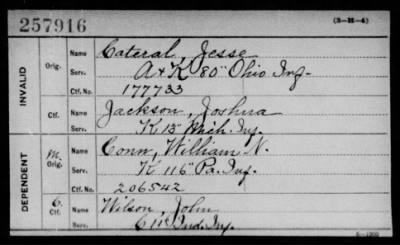 257916 (3-21-4)
INVALID
Orig. Name Cateral, Jesse
Serv. A & K 80" Ohio Inf.
Ctf. No. 177733
Ctf. Name Jackson, Joshua
Serv. K 13" Mich. Inf.
DEPENDENT
M. Orig. Name Conn, William N.
Serv. K 116" Pa. Inf.
Ctf. No. 206542
C. Ctf. Name Wilson, John
Serv. C 11" Ind. Inf.